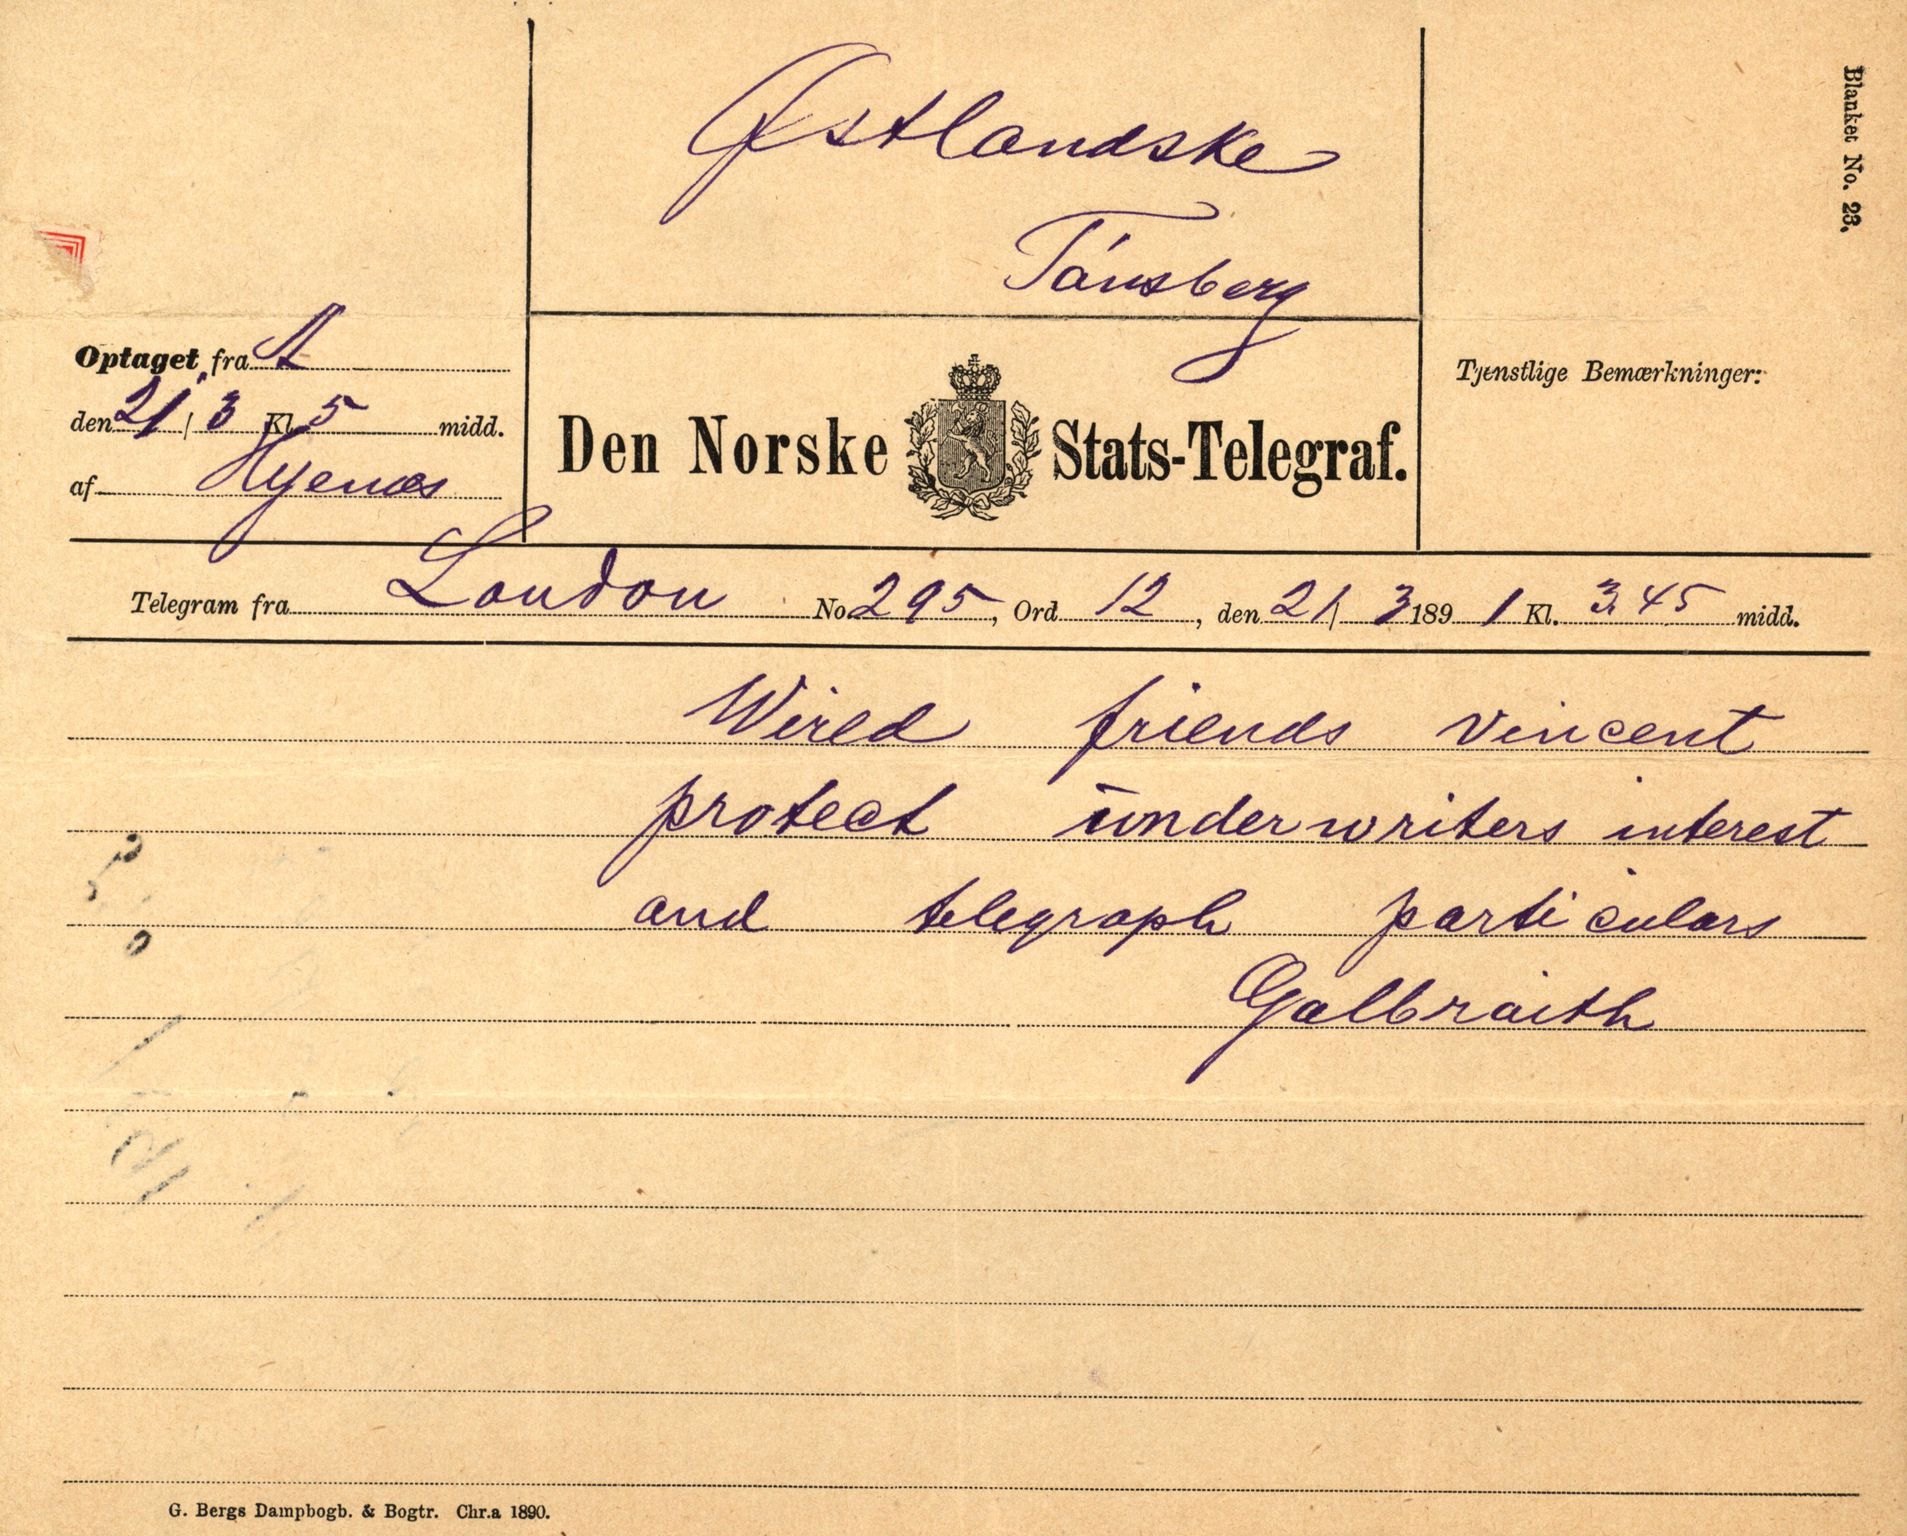 Østlandske
Tónsberg
Blanket No. 23.
Optaget fra A
den 21/3 Kl. 5 midd.
af
Den Norske Stats-Telegraf.
Tjenstlige Bemærkninger:
Telegram fra London No. 295, Ord 12, den 21/3 1891 Kl. 3.45 midd.
Wired friends Vincent
protect underwriters interest
and telegraph particulars
Galbraith
G. Bergs Dampbogb. & Bogtr. Chr.a 1890.